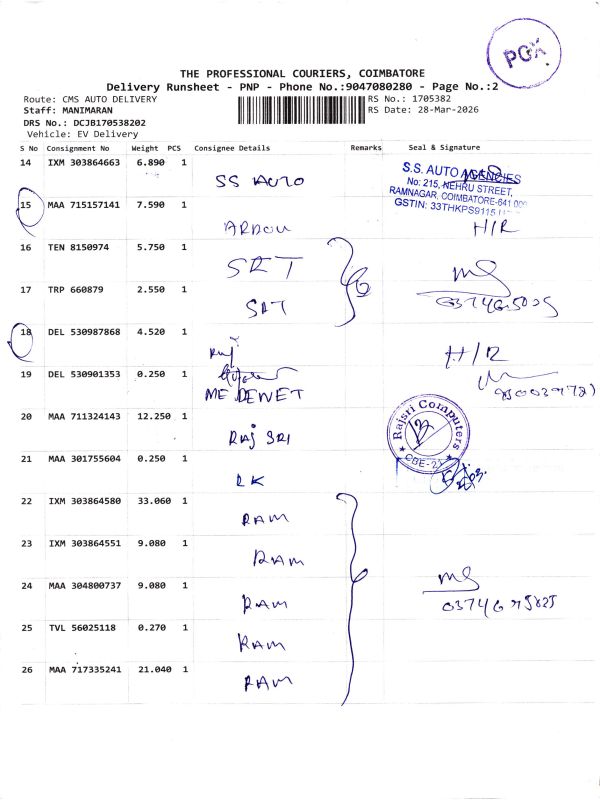 PGX
THE PROFESSIONAL COURIERS, COIMBATORE
Delivery Runsheet - PNP - Phone No.:9047080280 - Page No.:2
Route: CMS AUTO DELIVERY
RS No.: 1705382
Staff: MANIMARAN
RS Date: 28-Mar-2026
DRS No.: DCJB170538202
Vehicle: EV Delivery
S No Consignment No Weight PCS Consignee Details Remarks Seal & Signature
14 IXM 303864663 6.890 1 SS AUTO
S.S. AUTO AGENCIES
No: 215, NEHRU STREET,
RAMNAGAR, COIMBATORE-641 009
GSTIN: 33THKPS9115
15 MAA 715157141 7.590 1 H/R
16 TEN 8150974 5.750 1 SRT
17 TRP 660879 2.550 1 SRT
18 DEL 530987868 4.520 1 H/R
19 DEL 530901353 0.250 1
20 MAA 711324143 12.250 1 Raj SRI
Rajsri Computers
CBE-21
21 MAA 301755604 0.250 1 RK
22 IXM 303864580 33.060 1 RAM
23 IXM 303864551 9.080 1 RAM
24 MAA 304800737 9.080 1 RAM
25 TVL 56025118 0.270 1 RAM
26 MAA 717335241 21.040 1 RAM